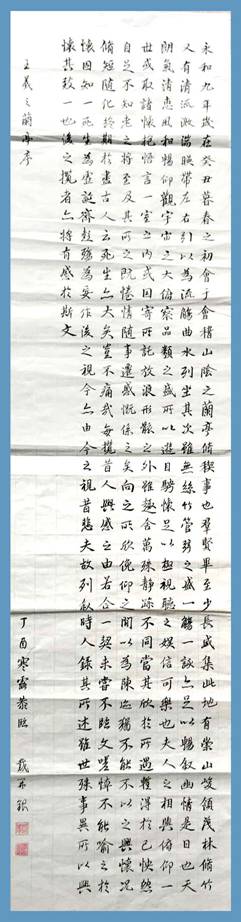 永和九年歲在癸丑暮春之初會于會稽山陰之蘭亭脩稧事也羣賢畢至少長咸集此地有崇山峻領茂林脩竹
又有清流激湍暎帶左右引以為流觴曲水列坐其次雖無絲竹管弦之盛一觴一詠亦足以暢叙幽情是日也天
朗氣清惠風和暢仰觀宇宙之大俯察品類之盛所以遊目騁懷足以極視聽之娛信可樂也夫人之相與俯仰一
世或取諸懷抱悟言一室之內或因寄所託放浪形骸之外雖趣舍萬殊靜躁不同當其欣於所遇蹔得於己怏然
自足不知老之將至及其所之既惓情隨事遷感慨係之矣向之所欣俛仰之間以為陳迹猶不能不以之興懷況
脩短隨化終期於盡古人云死生亦大矣豈不痛哉每攬昔人興感之由若合一契未嘗不臨文嗟悼不能喻之於
懷固知一死生為虛誕齊彭殤為妄作後之視今亦由今之視昔悲夫故列叙時人錄其所述雖世殊事異所以興
懷其致一也後之攬者亦將有感於斯文
王羲之蘭亭序
丁酉寒露恭臨 戴